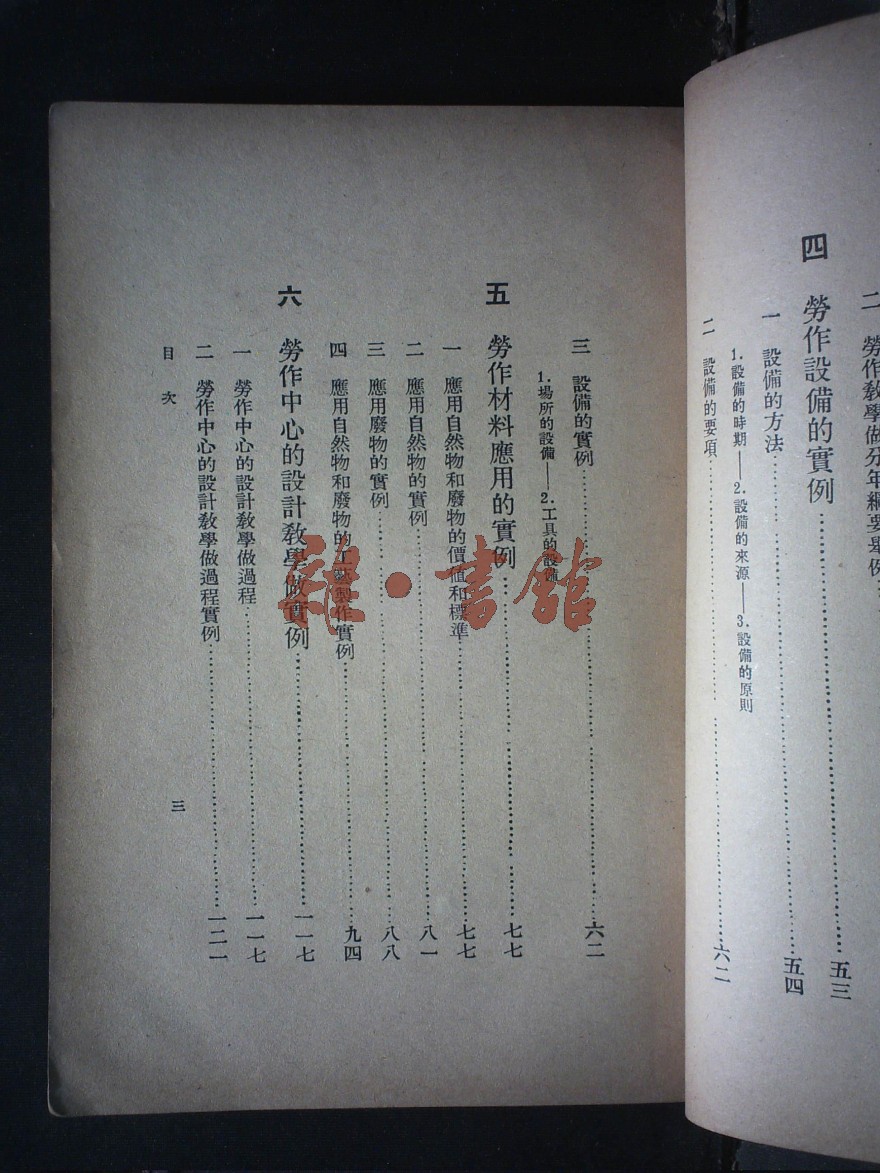 二 勞作教學做分年綱要舉例
四 勞作設備的實例……五三
一 設備的方法……五四
1.設備的時期——2.設備的來源——3.設備的原則
二 設備的要項……六二
三 設備的實例……六二
1.場所的設備——2.工具的設備
五 勞作材料應用的實例……七七
一 應用自然物和廢物的價值和標準……七七
二 應用自然物的實例……八一
三 應用廢物的實例……八八
四 應用自然物和廢物的工藝製作實例……九四
六 勞作中心的設計教學做實例……一一七
一 勞作中心的設計教學做過程……一一七
二 勞作中心的設計教學做過程實例……一二一
目次
三
雜·書館